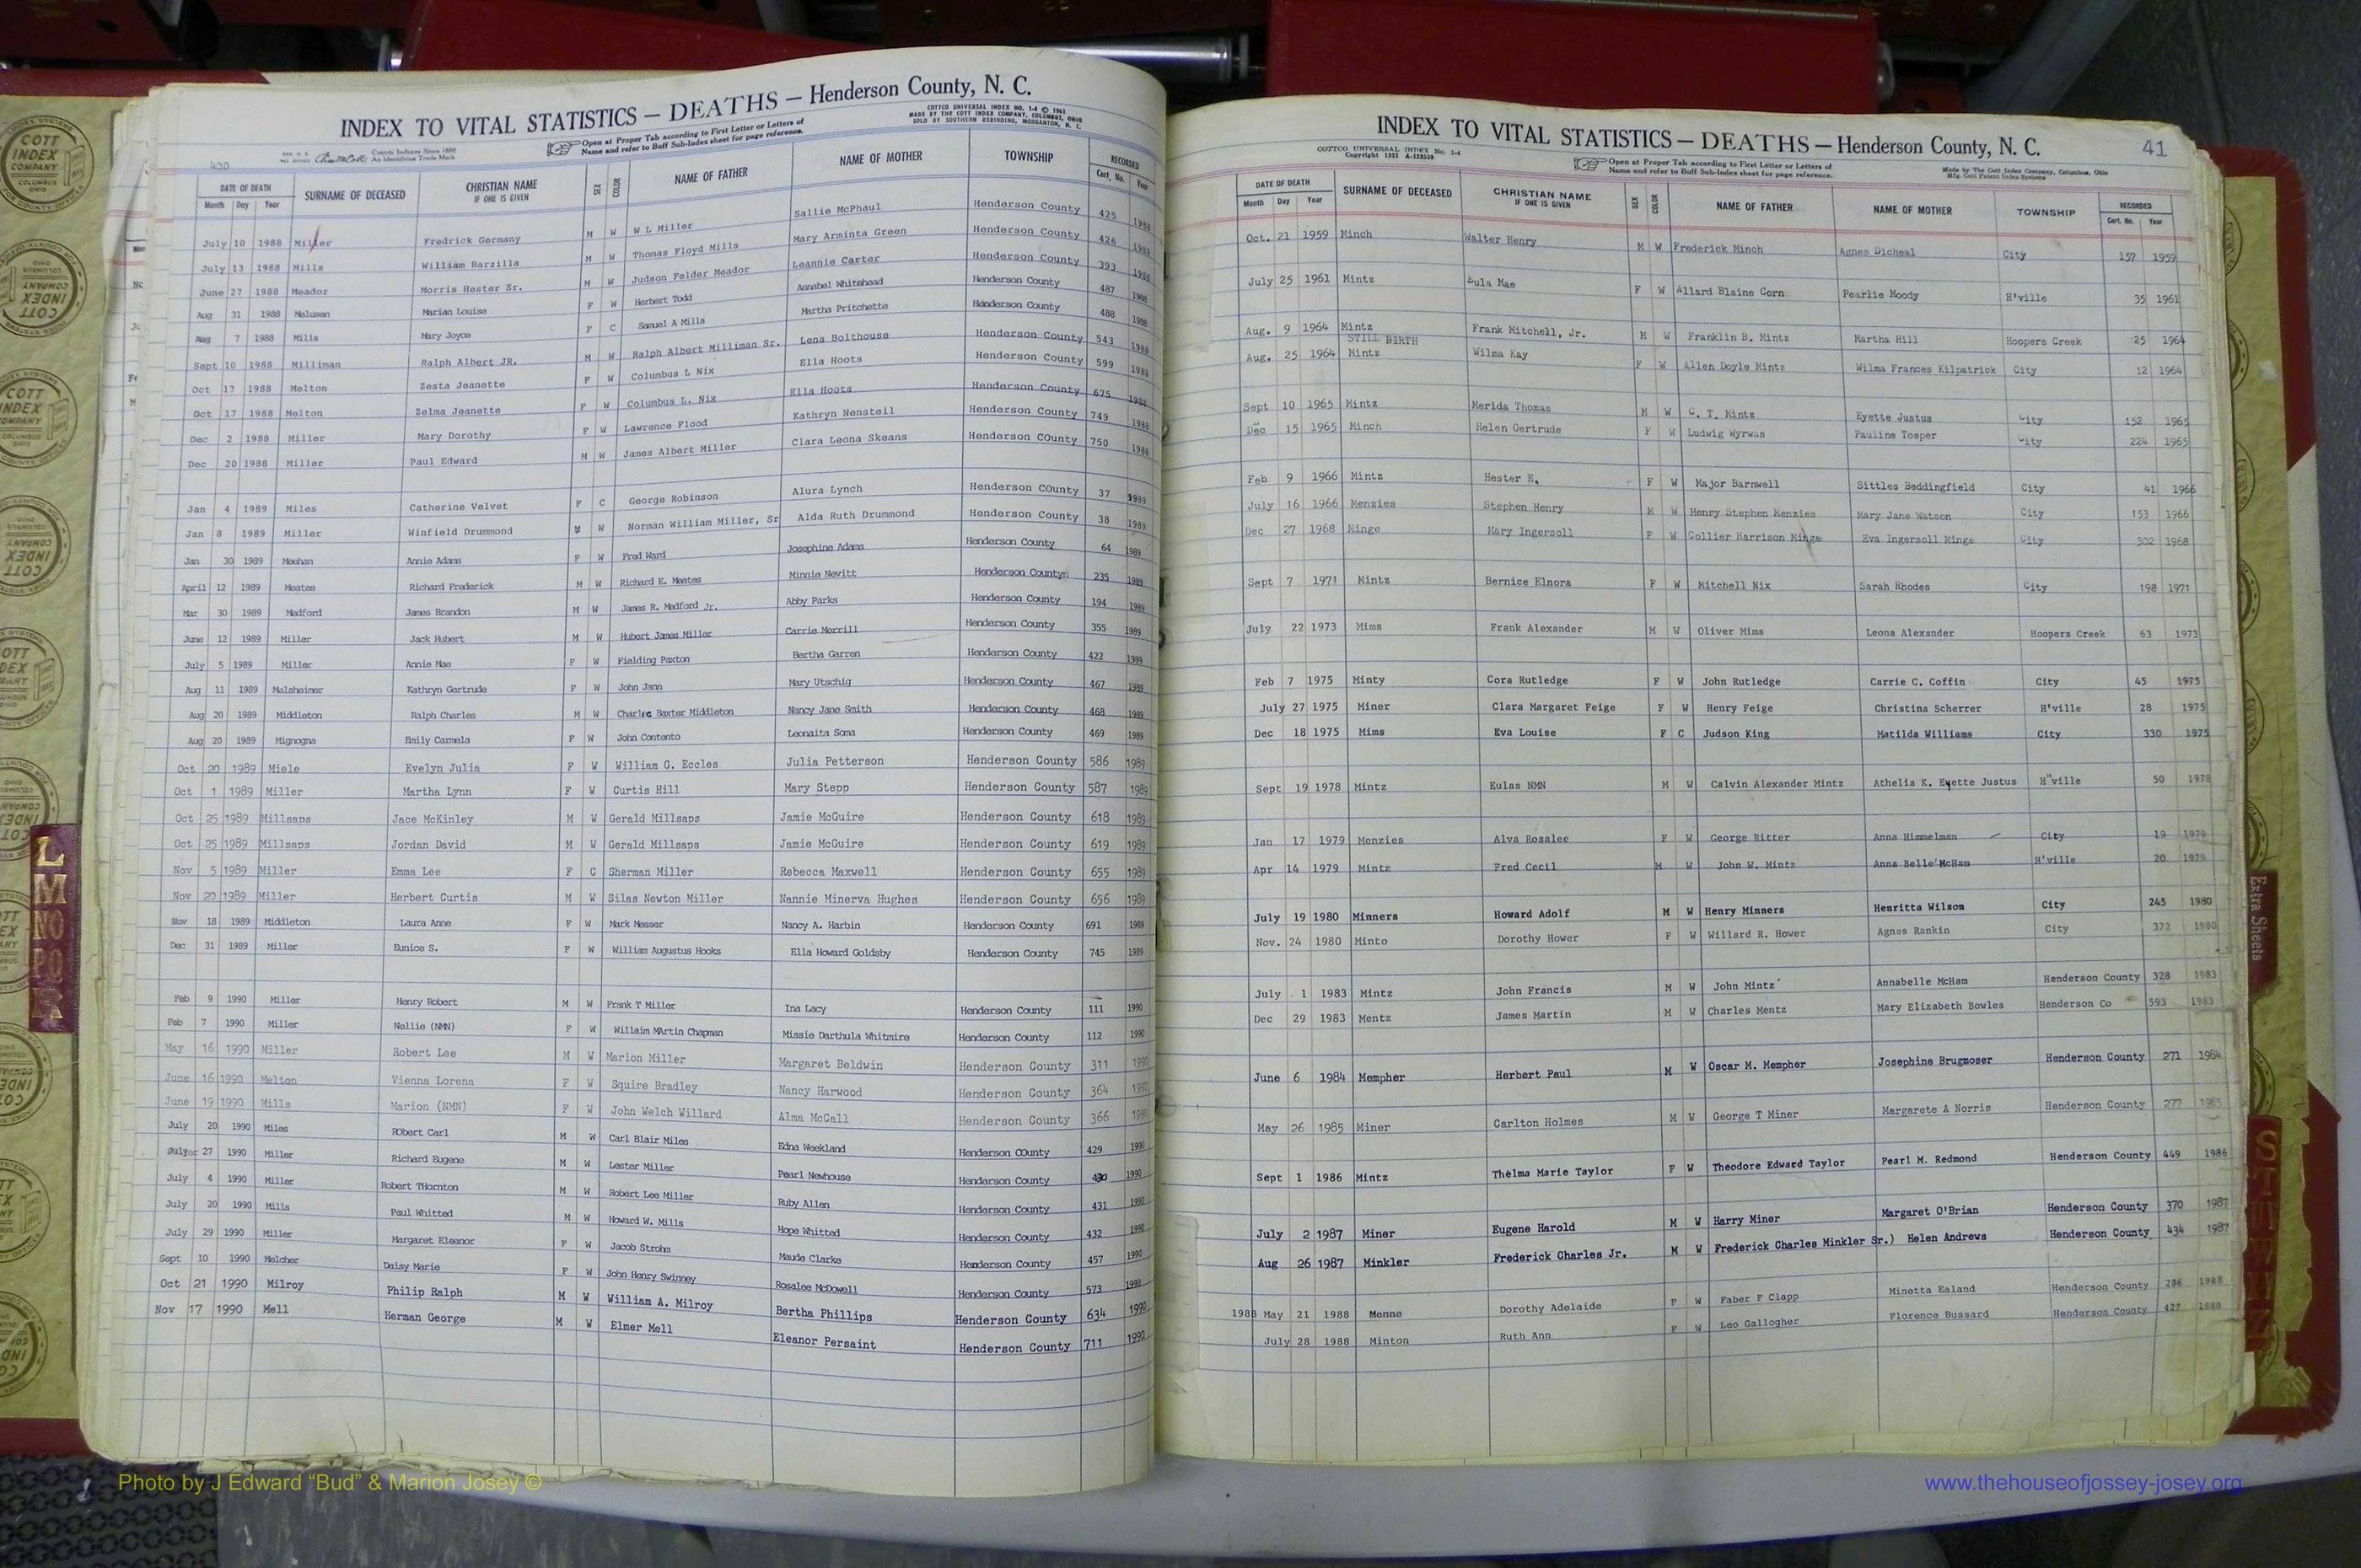 INDEX TO VITAL STATISTICS — DEATHS — Henderson County, N. C.
COTTCO UNIVERSAL INDEX NO. 1-4 © 1961
MADE BY THE COTT INDEX COMPANY, COLUMBUS, OHIO
SOLD BY SOUTHERN REBINDING, MORGANTON, N. C.
40D
County Indexes Since 1888
An Identifying Trade Mark
Open at Proper Tab according to First Letter or Letters of
Name and refer to Buff Sub-Index sheet for page reference.
DATE OF DEATH SURNAME OF DECEASED CHRISTIAN NAME IF ONE IS GIVEN SEX COLOR NAME OF FATHER NAME OF MOTHER TOWNSHIP RECORDED
Month Day Year Cert. No. Year
July 10 1988 Miller Fredrick Germany M W W L Miller Sallie McPhaul Henderson County 425 1988
July 13 1988 Mills William Barzilla M W Thomas Floyd Mills Mary Arminta Green Henderson County 426 1988
June 27 1988 Meador Morris Hester Sr. M W Judson Felder Meador Leannie Carter Henderson County 393 1988
Aug 31 1988 Melusen Marian Louise F W Herbert Todd Annabel Whitehead Henderson County 487 1988
Aug 7 1988 Mills Mary Joyce F C Samuel A Mills Martha Pritchette Henderson County 488 1988
Sept 10 1988 Milliman Ralph Albert JR. M W Ralph Albert Milliman Sr. Lena Bolthouse Henderson County 543 1988
Oct 17 1988 Melton Zesta Jeanette F W Columbus L Nix Ella Hoots Henderson County 599 1988
Oct 17 1988 Melton Zelma Jeanette F W Columbus L. Nix Ella Hoots Henderson County 675 1988
Dec 2 1988 Miller Mary Dorothy F W Lawrence Flood Kathryn Nensteil Henderson County 749 1988
Dec 20 1988 Miller Paul Edward M W James Albert Miller Clara Leona Skeans Henderson COunty 750 1988
Jan 4 1989 Miles Catherine Velvet F C George Robinson Alura Lynch Henderson COunty 37 1989
Jan 8 1989 Miller Winfield Drummond M W Norman William Miller, Sr Alda Ruth Drummond Henderson County 38 1989
Jan 30 1989 Meehan Annie Adams F W Fred Ward Josephine Adams Henderson County 64 1989
April 12 1989 Meates Richard Frederick M W Richard E. Meates Minnie Nevitt Henderson County 235 1989
Mar 30 1989 Medford James Brandon M W James R. Medford Jr. Abby Parks Henderson County 194 1989
June 12 1989 Miller Jack Hubert M W Hubert James Miller Carrie Merrill Henderson County 355 1989
July 5 1989 Miller Annie Mae F W Fielding Paxton Bertha Garren Henderson County 422 1989
Aug 11 1989 Melsheimer Kathryn Gertrude F W John Jann Mary Utschig Henderson County 467 1989
Aug 20 1989 Middleton Ralph Charles M W Charlre Baxter Middleton Nancy Jane Smith Henderson County 468 1989
Aug 20 1989 Mignogna Emily Carmela F W John Contento Leonaita Soma Henderson County 469 1989
Oct 20 1989 Miele Evelyn Julia F W William G. Eccles Julia Petterson Henderson County 586 1989
Oct 1 1989 Miller Martha Lynn F W Curtis Hill Mary Stepp Henderson County 587 1989
Oct 25 1989 Millsaps Jace McKinley M W Gerald Millsaps Jamie McGuire Henderson County 618 1989
Oct 25 1989 Millsaps Jordan David M W Gerald Millsaps Jamie McGuire Henderson County 619 1989
Nov 5 1989 Miller Emma Lee F C Sherman Miller Rebecca Maxwell Henderson County 655 1989
Nov 20 1989 Miller Herbert Curtis M W Silas Newton Miller Nannie Minerva Hughes Henderson County 656 1989
Nov 18 1989 Middleton Laura Anne F W Mark Messer Nancy A. Harbin Henderson County 691 1989
Dec 31 1989 Miller Eunice S. F W William Augustus Hooks Ella Howard Goldsby Henderson County 745 1989
Feb 9 1990 Miller Henry Robert M W Frank T Miller Ina Lacy Henderson County 111 1990
Feb 7 1990 Miller Nellie (NMN) F W Willaim MArtin Chapman Missie Darthula Whitmire Henderson County 112 1990
May 16 1990 Miller Robert Lee M W Marion Miller Margaret Beldwin Henderson County 311 1990
June 16 1990 Melton Vienna Lorena F W Squire Bradley Nancy Harwood Henderson County 364 1990
June 19 1990 Mills Marion (NMN) F W John Welch Willard Alma McCall Henderson County 366 1990
July 20 1990 Miles RObert Carl M W Carl Blair Miles Edna Weekland Henderson COunty 429 1990
27 1990 Miller Richard Eugene M W Lester Miller Pearl Newhouse Henderson County 430 1990
July 4 1990 Miller Robert THornton M W Robert Lee Miller Ruby Allen Henderson County 431 1990
July 20 1990 Mills Paul Whitted M W Howard W. Mills Hope Whitted Henderson County 432 1990
July 29 1990 Miller Margaret Eleanor F W Jacob Strohm Maude Clarke Henderson County 457 1990
Sept 10 1990 Melcher Daisy Marie F W John Henry Swinney Rosalee McDowell Henderson County 573 1990
Oct 21 1990 Milroy Philip Ralph M W William A. Milroy Bertha Phillips Henderson County 634 1990
Nov 17 1990 Mell Herman George M W Elmer Mell Eleanor Persaint Henderson County 711 1990
INDEX TO VITAL STATISTICS — DEATHS — Henderson County, N. C. 41
COTTCO UNIVERSAL INDEX No. 1-4
Open at Proper Tab according to First Letter or Letters of
Name and refer to Buff Sub-Index sheet for page reference.
Made by The Cott Index Company, Columbus, Ohio
DATE OF DEATH SURNAME OF DECEASED CHRISTIAN NAME IF ONE IS GIVEN SEX COLOR NAME OF FATHER NAME OF MOTHER TOWNSHIP RECORDED
Month Day Year Cert. No. Year
Oct. 21 1959 Minch Walter Henry M W Frederick Minch Agnes Dicheal City 157 1959
July 25 1961 Mintz Eula Mae F W Allard Blaine Corn Pearlie Moody H'ville 35 1961
Aug. 9 1964 Mintz Frank Mitchell, Jr. M W Franklin B. Mintz Martha Hill Hoopers Creek 25 1964
STILL BIRTH
Aug. 25 1964 Mintz Wilma Kay F W Allen Doyle Mintz Wilma Frances Kilpatrick City 12 1964
Sept 10 1965 Mintz Merida Thomas M W C. T. Mintz Eyette Justus City 152 1965
Dec 15 1965 Minch Helen Gertrude F W Ludwig Wyrwas Pauline Toeper City 224 1965
Feb 9 1966 Mintz Hester E. F W Major Barnwell Sittles Beddingfield City 41 1966
July 16 1966 Menzies Stephen Henry M W Henry Stephen Menzies Mary Jane Watson City 153 1966
Dec 27 1968 Minge Mary Ingersoll F W Collier Harrison Minge Eva Ingersoll Minge City 302 1968
Sept 7 1971 Mintz Bernice Elnora F W Mitchell Nix Sarah Rhodes City 198 1971
July 22 1973 Mims Frank Alexander M W Oliver Mims Leona Alexander Hoopers Creek 63 1973
Feb 7 1975 Minty Cora Rutledge F W John Rutledge Carrie C. Coffin City 45 1975
July 27 1975 Miner Clara Margaret Feige F W Henry Feige Christina Scherrer H'ville 28 1975
Dec 18 1975 Mims Eva Louise F C Judson King Matilda Williams City 330 1975
Sept 19 1978 Mintz Eulas NMN M W Calvin Alexander Mintz Athelia K. Eyette Justus H"ville 50 1978
Jan 17 1979 Menzies Alva Rosalee F W George Ritter Anna Himmelman City 19 1979
Apr 14 1979 Mintz Fred Cecil M W John W. Mintz Anna Belle McHam H'ville 20 1979
July 19 1980 Minners Howard Adolf M W Henry Minners Henritta Wilson City 245 1980
Nov. 24 1980 Minto Dorothy Hower F W Willard R. Hower Agnes Rankin City 372 1980
July 1 1983 Mintz John Francis M W John Mintz Annabelle McHam Henderson County 328 1983
Dec 29 1983 Mentz James Martin M W Charles Mentz Mary Elizabeth Bowles Henderson Co 593 1983
June 6 1984 Mempher Herbert Paul M W Oscar M. Mempher Josephine Brugmoser Henderson County 271 1984
May 26 1985 Miner Carlton Holmes M W George T Miner Margarete A Norris Henderson County 277 1985
Sept 1 1986 Mintz Thelma Marie Taylor F W Theodore Edward Taylor Pearl M. Redmond Henderson County 449 1986
July 2 1987 Miner Eugene Harold M W Harry Miner Margaret O'Brian Henderson County 370 1987
Aug 26 1987 Minkler Frederick Charles Jr. M W Frederick Charles Minkler Sr.) Helen Andrews Henderson County 434 1987
1988 May 21 1988 Menne Dorothy Adelaide F W Faber F Clapp Minetta Ealand Henderson County 286 1988
July 28 1988 Minton Ruth Ann F W Leo Gallogher Florence Bussard Henderson County 427 1988
COTT INDEX COMPANY COLUMBUS OHIO
L
M
NO
PQ
R
Extra Sheets
S
T
Photo by J Edward “Bud” & Marion Josey ©
www.thehouseofjossey-josey.org